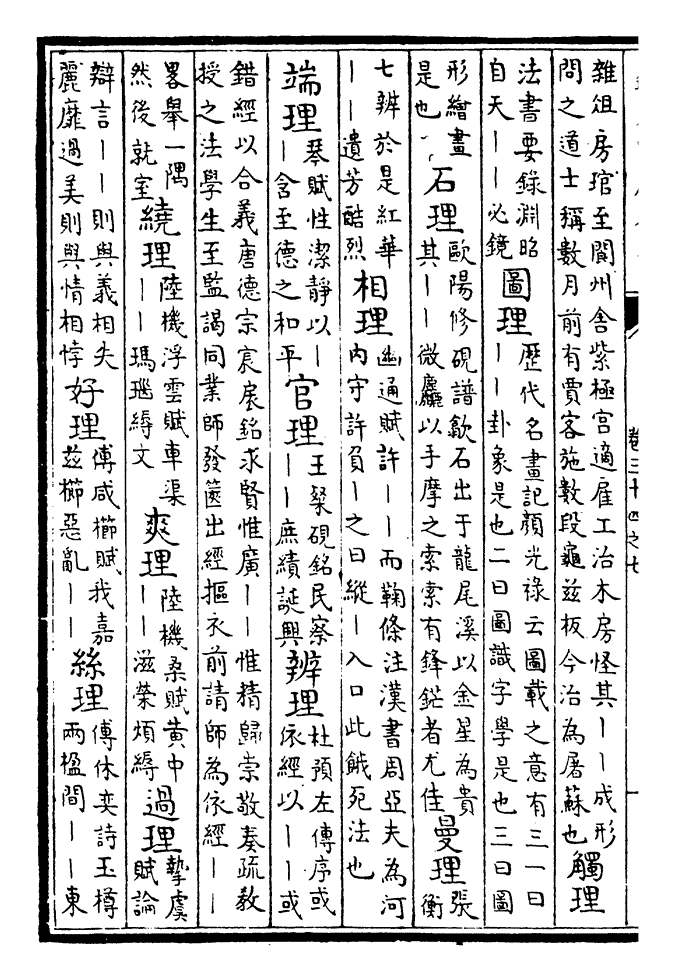 雜俎房琯至閬州舍紫極宮適雇工治木房怪其丨丨成形
問之道士稱數月前有賈客施數段龜茲板今治為屠蘇也
觸理
法書要錄淵昭
自天丨丨必鏡
圖理
歷代名畫記顏光祿云圖載之意有三一曰
丨丨卦象是也二曰圖識字學是也三曰圖
形繪畫
是也
石理
歐陽修硯譜歙石出于龍尾溪以金星為貴
其丨丨微麤以手摩之索索有鋒鋩者尤佳
曼理
張
衡
七辨於是紅華
丨丨遺芳酷烈
相理
幽通賦許丨丨而鞠條注漢書周亞夫為河
內守許負丨之曰縱丨入口此餓死法也
端理
琴賦性潔靜以丨
丨含至德之和平
官理
王粲硯銘民察
丨丨庶績誕興
辨理
杜預左傳序或
依經以丨丨或
錯經以合義唐德宗扆銘求賢惟廣丨丨惟精歸崇敬奏疏教
授之法學生至監謁同業師發篋出經摳衣前請師為依經丨丨
畧舉一隅
然後就室
繞理
陸機浮雲賦車渠
丨丨瑪瑙縟文
爽理
陸機桑賦黃中
丨丨滋榮煩縟
過理
摯虞
賦論
辯言丨丨則與義相失
麗靡過美則與情相悖
好理
傅咸櫛賦我嘉
茲櫛惡亂丨丨
絲理
傅休奕詩玉樽
兩楹間丨丨東
卷三十四之七